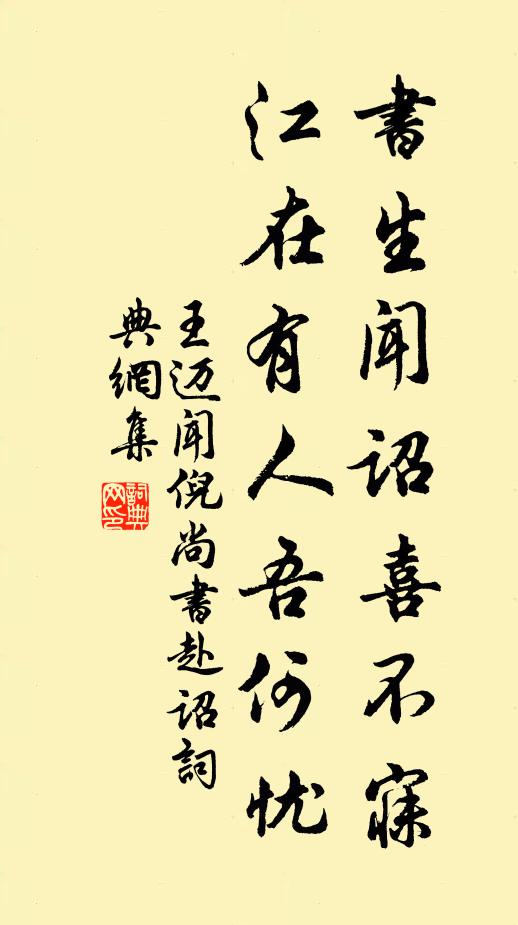 書生闻詔喜不寐
江在有人吾何忧
王迈闻倪尚書赴詔詞
典網集
詞典网印